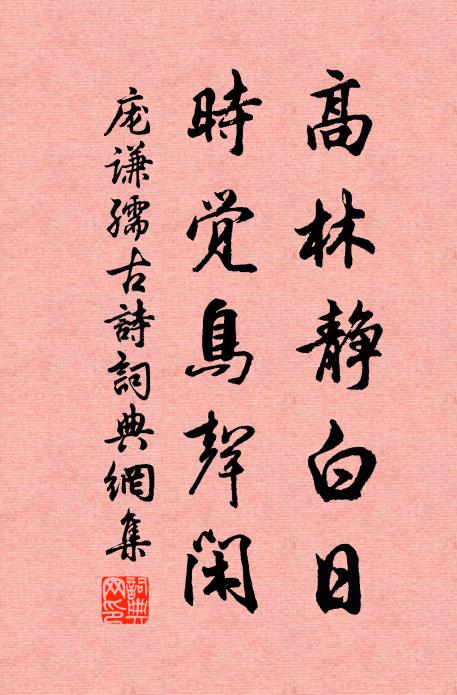 高林静白日
時觉鳥聲閑
庞谦孺古詩詞典網集
詞典网印